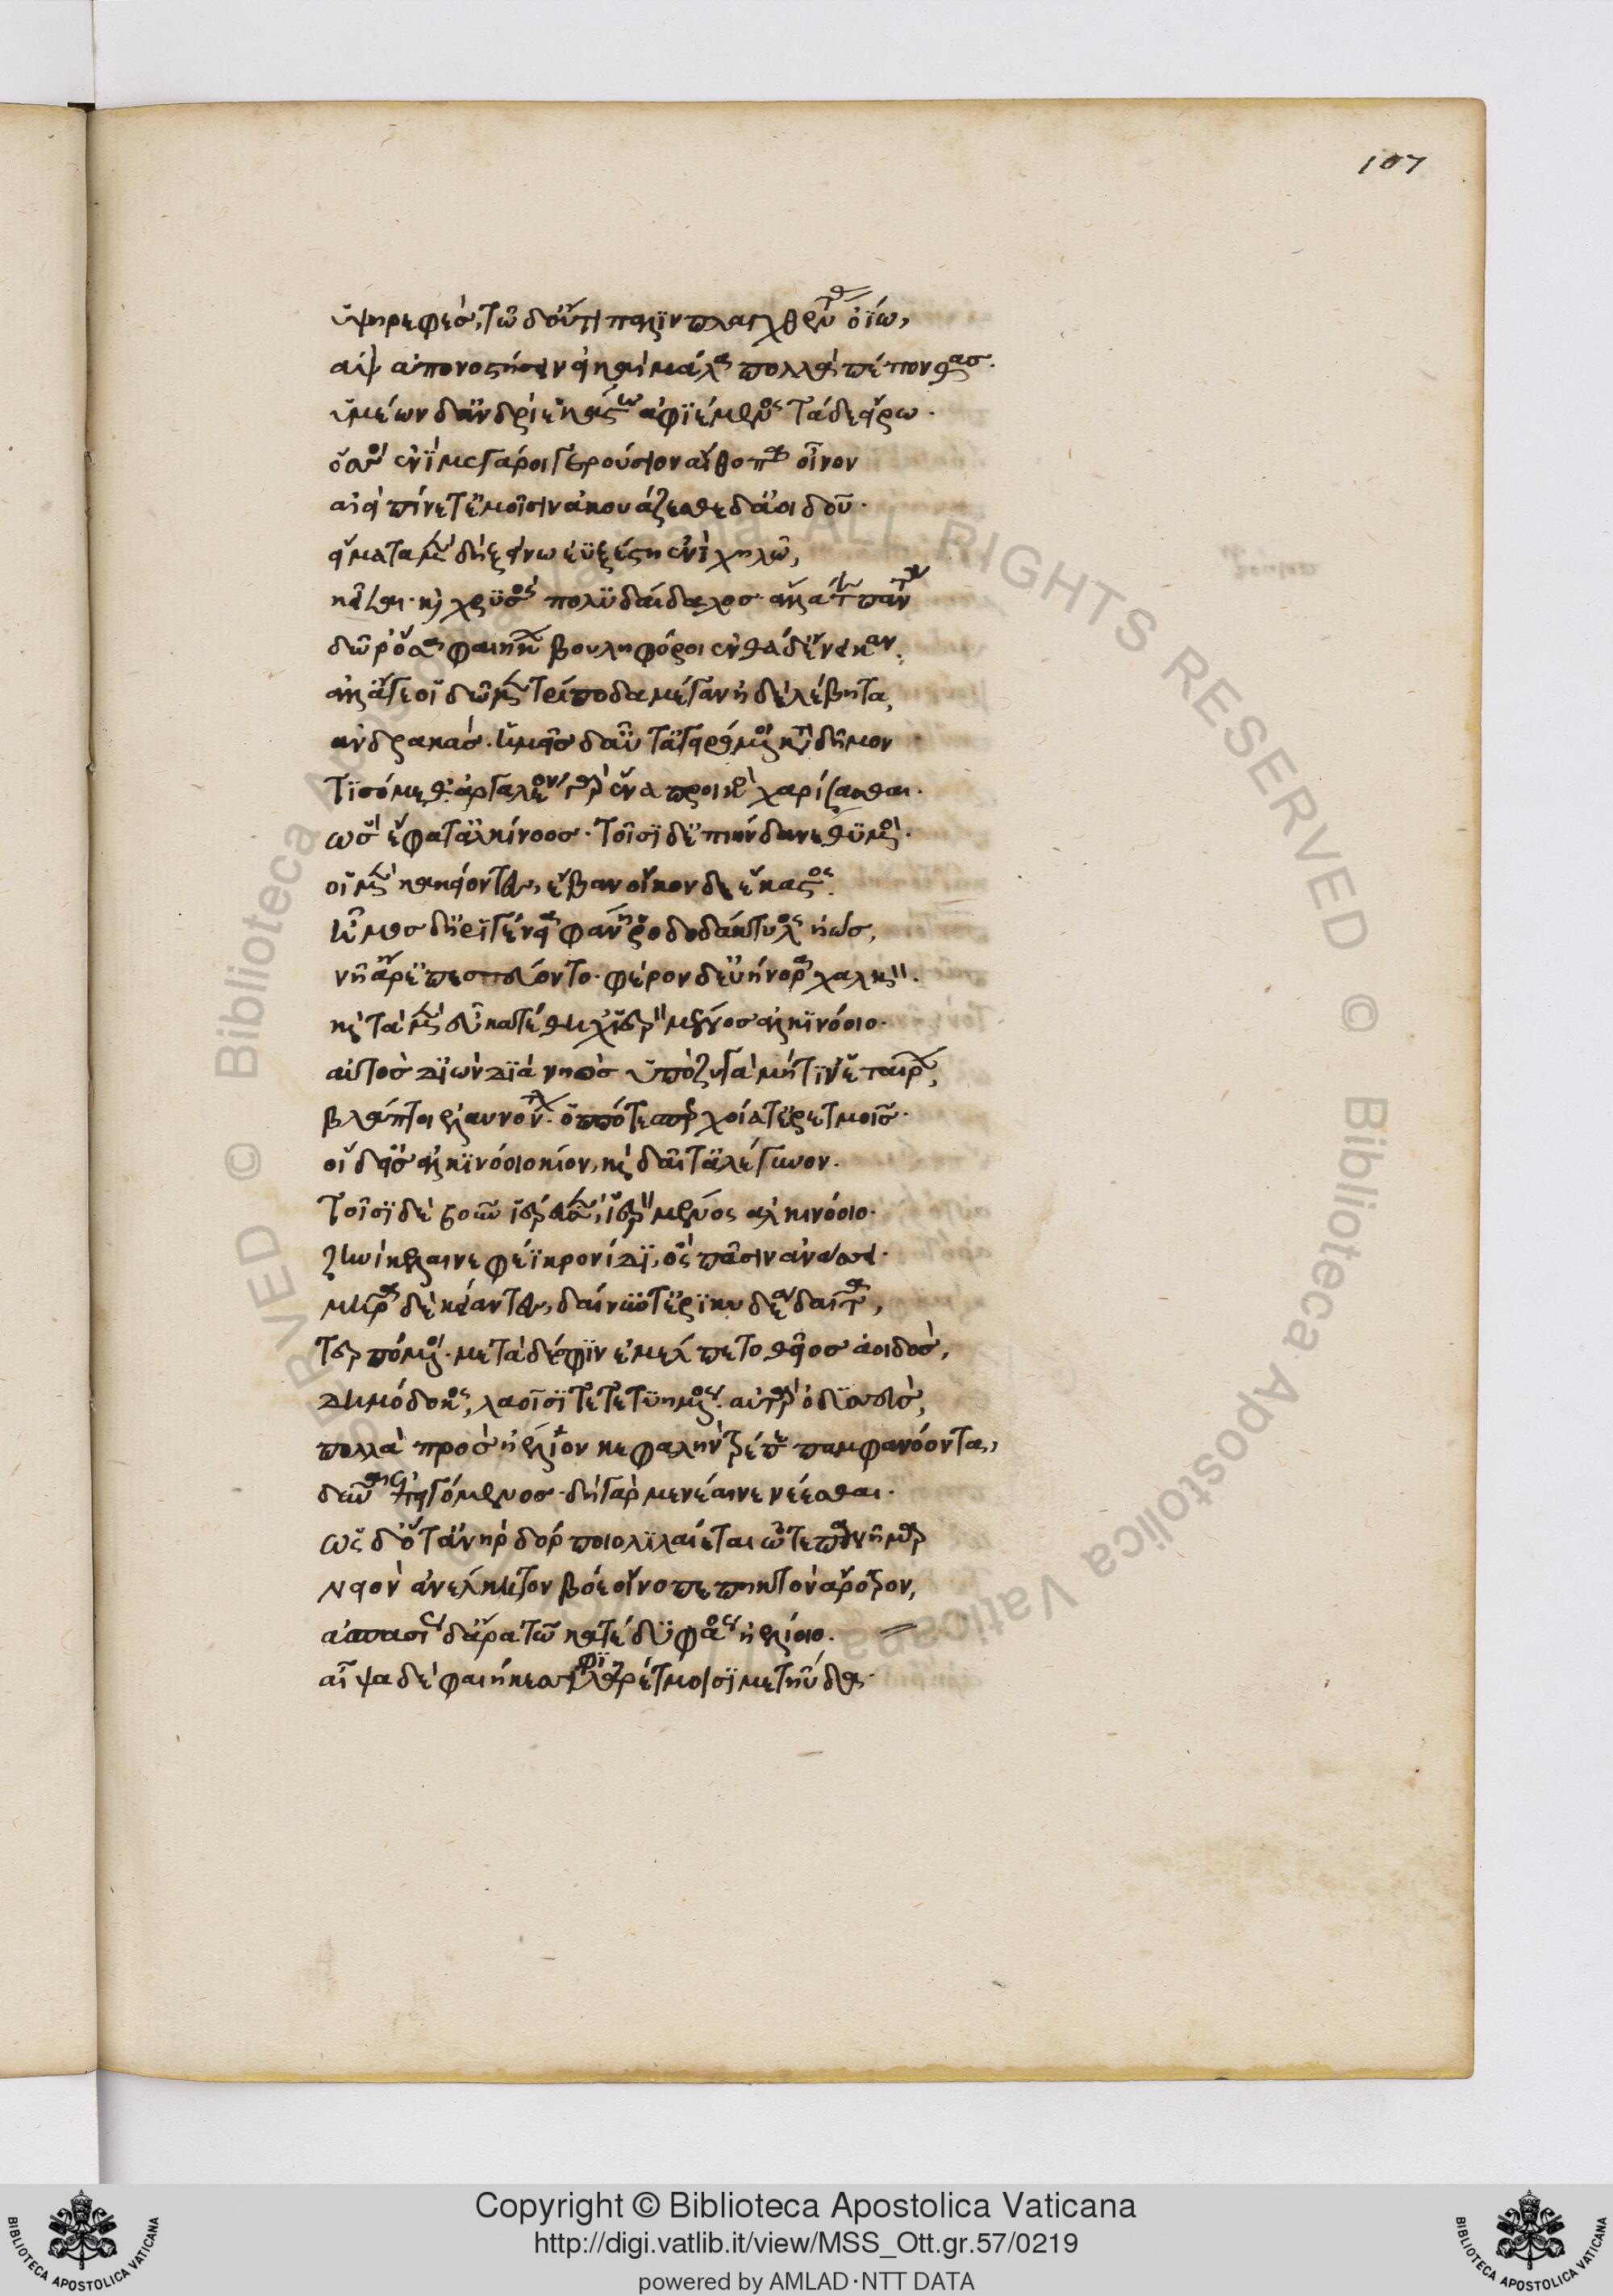 107
ὑψηρεφέσ, τῶ σ' οὔτι παλιν πλαγχθέντα ὀΐω,
αἲψ ἀπονοστήσειν εἰ καὶ μάλα πολλὰ πέπονθασ.
ὑμέων δ' ἀνδρὶ ἑκάστω ἐφιέμενος τάδε εἴρω.
ὅσσοι ἐνὶ μεγάροισι γερούσιον αἴθοπα οἶνον
αἰεὶ πίνετ' ἐμοῖσιν ἀκουάζεσθε δ' ἀοιδοῦ.
εἵματα μὲν δὴ ξείνω ἐϋξέστη ἐνὶ χηλῶ,
κεῖται. καὶ χρυσὸς πολυδαίδαλοσ. ἄλλα τε πάντα
δῶρ' ὅσα φαιήκων βουληφόροι ἐνθάδ' ἔνεικαν.
ἀλλ' ἄγε οἱ δῶμεν τρίποδα μέγαν ἠδὲ λέβητα,
ἀνδρακάσ. ἡμεῖσ δ' αὖτε ἀγειρόμενοι κατὰ δῆμον
τισόμεθ' ἀργαλέον γὰρ ἕνα προικὸς χαρίσασθαι.
ὡσ ἔφατ' ἀλκίνοοσ. τοῖσι δ' ἐπιήνδανε θυμός.
οἱ μὲν κακείοντες, ἔβαν οἶκον δε ἕκαστος.
ἦμοσ δ' ἠριγένεια φάνη ῥοδοδάκτυλος ἠώσ,
νῆα δ' ἐπεσσεύοντο. φέρον δ' εὐήνορα χαλκόν.
καὶ τὰ μὲν εὖ κατέθηχ' ἱερὸν μένοσ ἀλκινόοιο.
αὐτὸσ ἰὼν διὰ νηὸσ ὑπὸ ζυγὰ μή τιν' ἑταίρων,
βλάπτοι ἐλαυνόντων. ὁππότε σπερχοίατ' ἐρετμοῖσ.
οἱ δ' εἰσ ἀλκινόοιο κίον, καὶ δαῖτ' ἀλέγυνον.
τοῖσι δὲ βοῦν ἱέρευσεν, ἱερὸν μένος ἀλκινόοιο.
ζηνὶ κελαινεφέϊ κρονίδῃ, ὃς πᾶσιν ἀνάσσει.
μῆρα δὲ κείαντες, δαίνυντ' ἐρικυδέα δαῖτα,
τερπόμενοι. μετὰ δέ σφιν ἐμέλπετο θεῖοσ ἀοιδόσ,
δημόδοκος, λαοῖσι τετιμένος. αὐτὰρ ὀδυσσεύσ,
πολλὰ πρὸσ ἠέλιον κεφαλὴν τρέπε παμφανόωντα,
δῦναι ἐπειγόμενοσ. δὴ γὰρ μενέαινε νέεσθαι.
ὡς δ' ὅτ' ἀνὴρ δόρποιο λιλαίεται ᾧτε πανῆμαρ
νειὸν ἀνέλκητον βόε οἴνοπε πηκτὸν ἄροτρον,
ἀσπασίως δ' ἄρα τῶ κατέδυ φάος ἠελίοιο.
αἶψα δὲ φαιήκεσσι φιληρέτμοισι μετηύδα.
Copyright © Biblioteca Apostolica Vaticana
http://digi.vatlib.it/view/MSS_Ott.gr.57/0219
powered by AMLAD·NTT DATA
BIBLIOTECA APOSTOLICA VATICANA
BIBLIOTECA APOSTOLICA VATICANA
© Biblioteca Apostolica Vaticana ALL RIGHTS RESERVED © Biblioteca Apostolica Vaticana ALL RIGHTS RESERVED